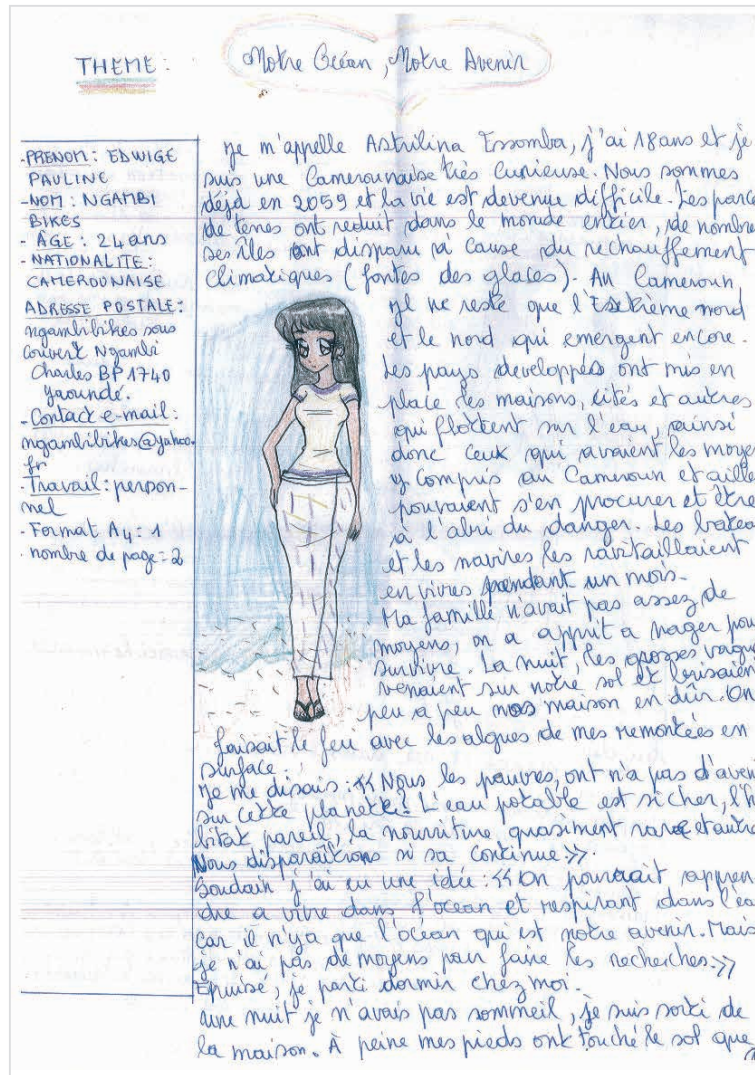 THEME : Notre Océan, Notre Avenir
- PRENOM : EDWIGE
PAULINE
- NOM : NGAMBI
BIKES
- ÂGE : 24 ans
- NATIONALITE :
CAMEROUNAISE
ADRESSE POSTALE :
ngambibikes sous
couvert Ngambi
Charles BP 1740
Yaoundé.
- Contact e-mail :
ngambibikes@yahoo.
fr
- Travail : person-
nel
- Format A4 : 1
- nombre de page = 2
Je m'appelle Astrilina Essomba, j'ai 18 ans et je
suis une Camerounaise très curieuse. Nous sommes
déjà en 2059 et la vie est devenue difficile. Les parce
de terres ont reduit dans le monde entier, de nombre
ses îles ont disparu à cause du rechauffement
Climatiques (fontes des glaces). Au Cameroun
Il ne reste que l'Extrême nord
et le nord qui emergent encore.
Les pays developpés ont mis en
place les maisons, cités et autres
qui flottent sur l'eau, ainsi
donc ceux qui avaient les moye
y compris au Cameroun et aille
pouvaient s'en procurer et être
à l'abri du danger. Les batea
et les navires les ravitaillaient
en vivres pendant un mois.
Ma famille n'avait pas assez de
moyens, on a apprit a nager pou
survivre. La nuit, les grosses vague
venaient sur notre sol et brisaien
peu a peu nos maison en dûr. On
faisait le feu avec les algues de mes remontées en
surface.
Je me disais : << Nous les pauvres, ont n'a pas d'aveni
sur cette planette ! L'eau potable est si cher, l'h
bitat pareil, la nourriture quasiment rare et autre
Nous disparaîtrons si sa continue >>.
Soudain j'ai eu une idée : << On pourrait appren
dre a vivre dans l'ocean et respirant dans l'ea
car il n'ya que l'océan qui est notre avenir. Mais
je n'ai pas de moyens pour faire les recherches. >>
Epuisé, je parti dormir chez moi.
une nuit je n'avais pas sommeil, je suis sorti de
la maison. À peine mes pieds ont touché le sol que